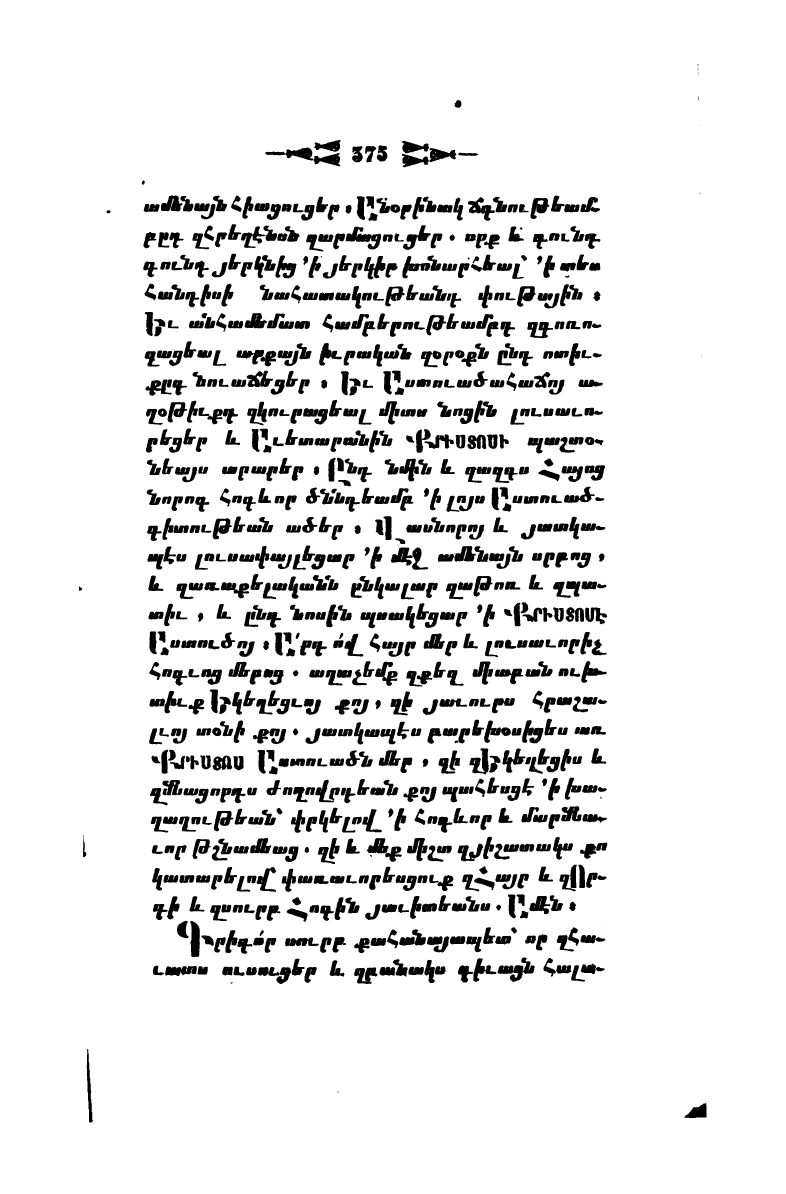 375
ամենայն հիացուցեր ։ Աննօրինակ ճգնութեամ-
բըդ զհրեղէնսն զարմացուցեր . որք և գունդ
գունդ յերկնից ՚ի յերկիր խոնարհեալ՝ ՚ի տես
հանդիսի նահատակութեանդ փութային ։
Եւ անհամեմատ համբերութեամբդ զգոռո-
զացեալ արքայն իւրական զօրօքն ընդ ոտիւ-
քըդ նուաճեցեր ։ Եւ Աստուածահաճոյ ա-
ղօթիւքդ զկուրացեալ միտս նոցին լուսաւո-
րեցեր և Աւետարանին ՔՐԻՍՏՈՍԻ պաշտօ-
նեայս արարեր ։ Ընդ նմին և զազգս Հայոց
նորոգ հոգևոր ծննդեամբ ՚ի լոյս Աստուած-
գիտութեան ածեր ։ Վասնորոյ և յատկա-
պէս լուսափայլեցար ՚ի մէջ ամենայն սրբոց ,
և զառաքելականն ընկալար զաթոռ և զպա-
տիւ , և ընդ նոսին պսակեցար ՚ի ՔՐԻՍՏՈՍԷ
Աստուծոյ ։ Արդ ո՛վ հայր մեր և լուսաւորիչ
հոգւոց մերոց . աղաչեմք զքեզ միաբան ուխ-
տիւք Եկեղեցւոյ քոյ , զի յաւուրս հրաշա-
լւոյ տօնի քոյ . յատկապէս բարեխօսիցես առ
ՔՐԻՍՏՈՍ Աստուածն մեր , զի զԵկեղեցիս և
զմնացորդս ժողովրդեան քոյ պահեսցէ ՚ի խա-
ղաղութեան՝ փրկելով ՚ի հոգևոր և մարմնա-
ւոր թշնամեաց . զի և մեք միշտ զյիշատակս քո
կատարելով՝ փառաւորեսցուք զՀայր և զՈր-
դի և զսուրբ Հոգին յաւիտեանս . Ամէն ։
Գրիգոր սուրբ քահանայապետ՝ որ զհա-
ւատս ուսուցեր և զբանակս դիւացն հալա-